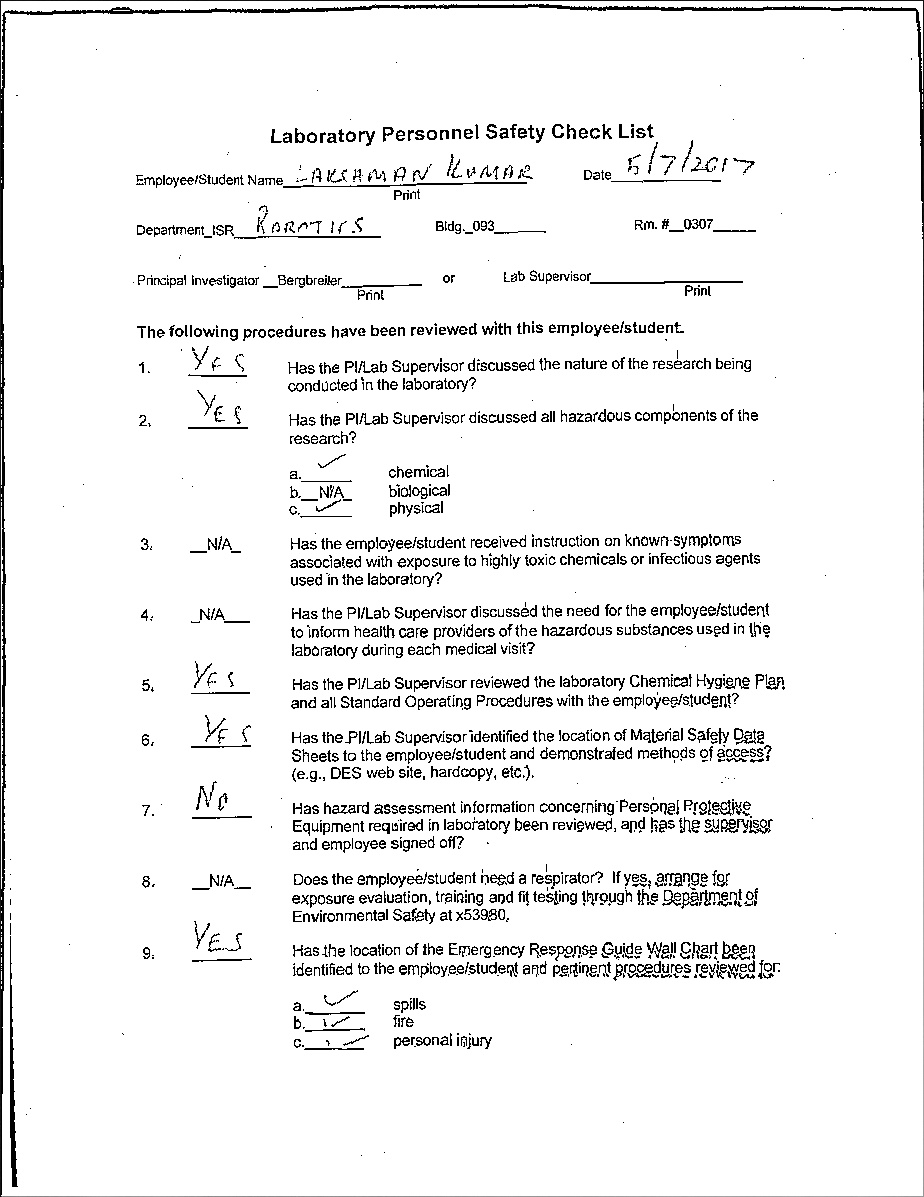 Laboratory Personnel Safety Check List
Employee/Student Name LAKSHMAN KUMAR Date 5/7/2017
Print
Department_ISR ROBOTICS Bldg._093 Rm. #__0307
Principal Investigator __Bergbreiler or Lab Supervisor
Print Print
The following procedures have been reviewed with this employee/student.
1. YES Has the PI/Lab Supervisor discussed the nature of the research being
conducted in the laboratory?
2. YES Has the PI/Lab Supervisor discussed all hazardous components of the
research?
a. ✓ chemical
b. N/A biological
c. ✓ physical
3. N/A Has the employee/student received instruction on known symptoms
associated with exposure to highly toxic chemicals or infectious agents
used in the laboratory?
4. N/A Has the PI/Lab Supervisor discussed the need for the employee/student
to inform health care providers of the hazardous substances used in the
laboratory during each medical visit?
5. YES Has the PI/Lab Supervisor reviewed the laboratory Chemical Hygiene Plan
and all Standard Operating Procedures with the employee/student?
6. YES Has the PI/Lab Supervisor identified the location of Material Safety Data
Sheets to the employee/student and demonstrated methods of access?
(e.g., DES web site, hardcopy, etc.).
7. NO Has hazard assessment information concerning Personal Protective
Equipment required in laboratory been reviewed, and has the supervisor
and employee signed off?
8. N/A Does the employee/student need a respirator? If yes, arrange for
exposure evaluation, training and fit testing through the Department of
Environmental Safety at x53980.
9. YES Has the location of the Emergency Response Guide Wall Chart been
identified to the employee/student and pertinent procedures reviewed for:
a. ✓ spills
b. ✓ fire
c. ✓ personal injury